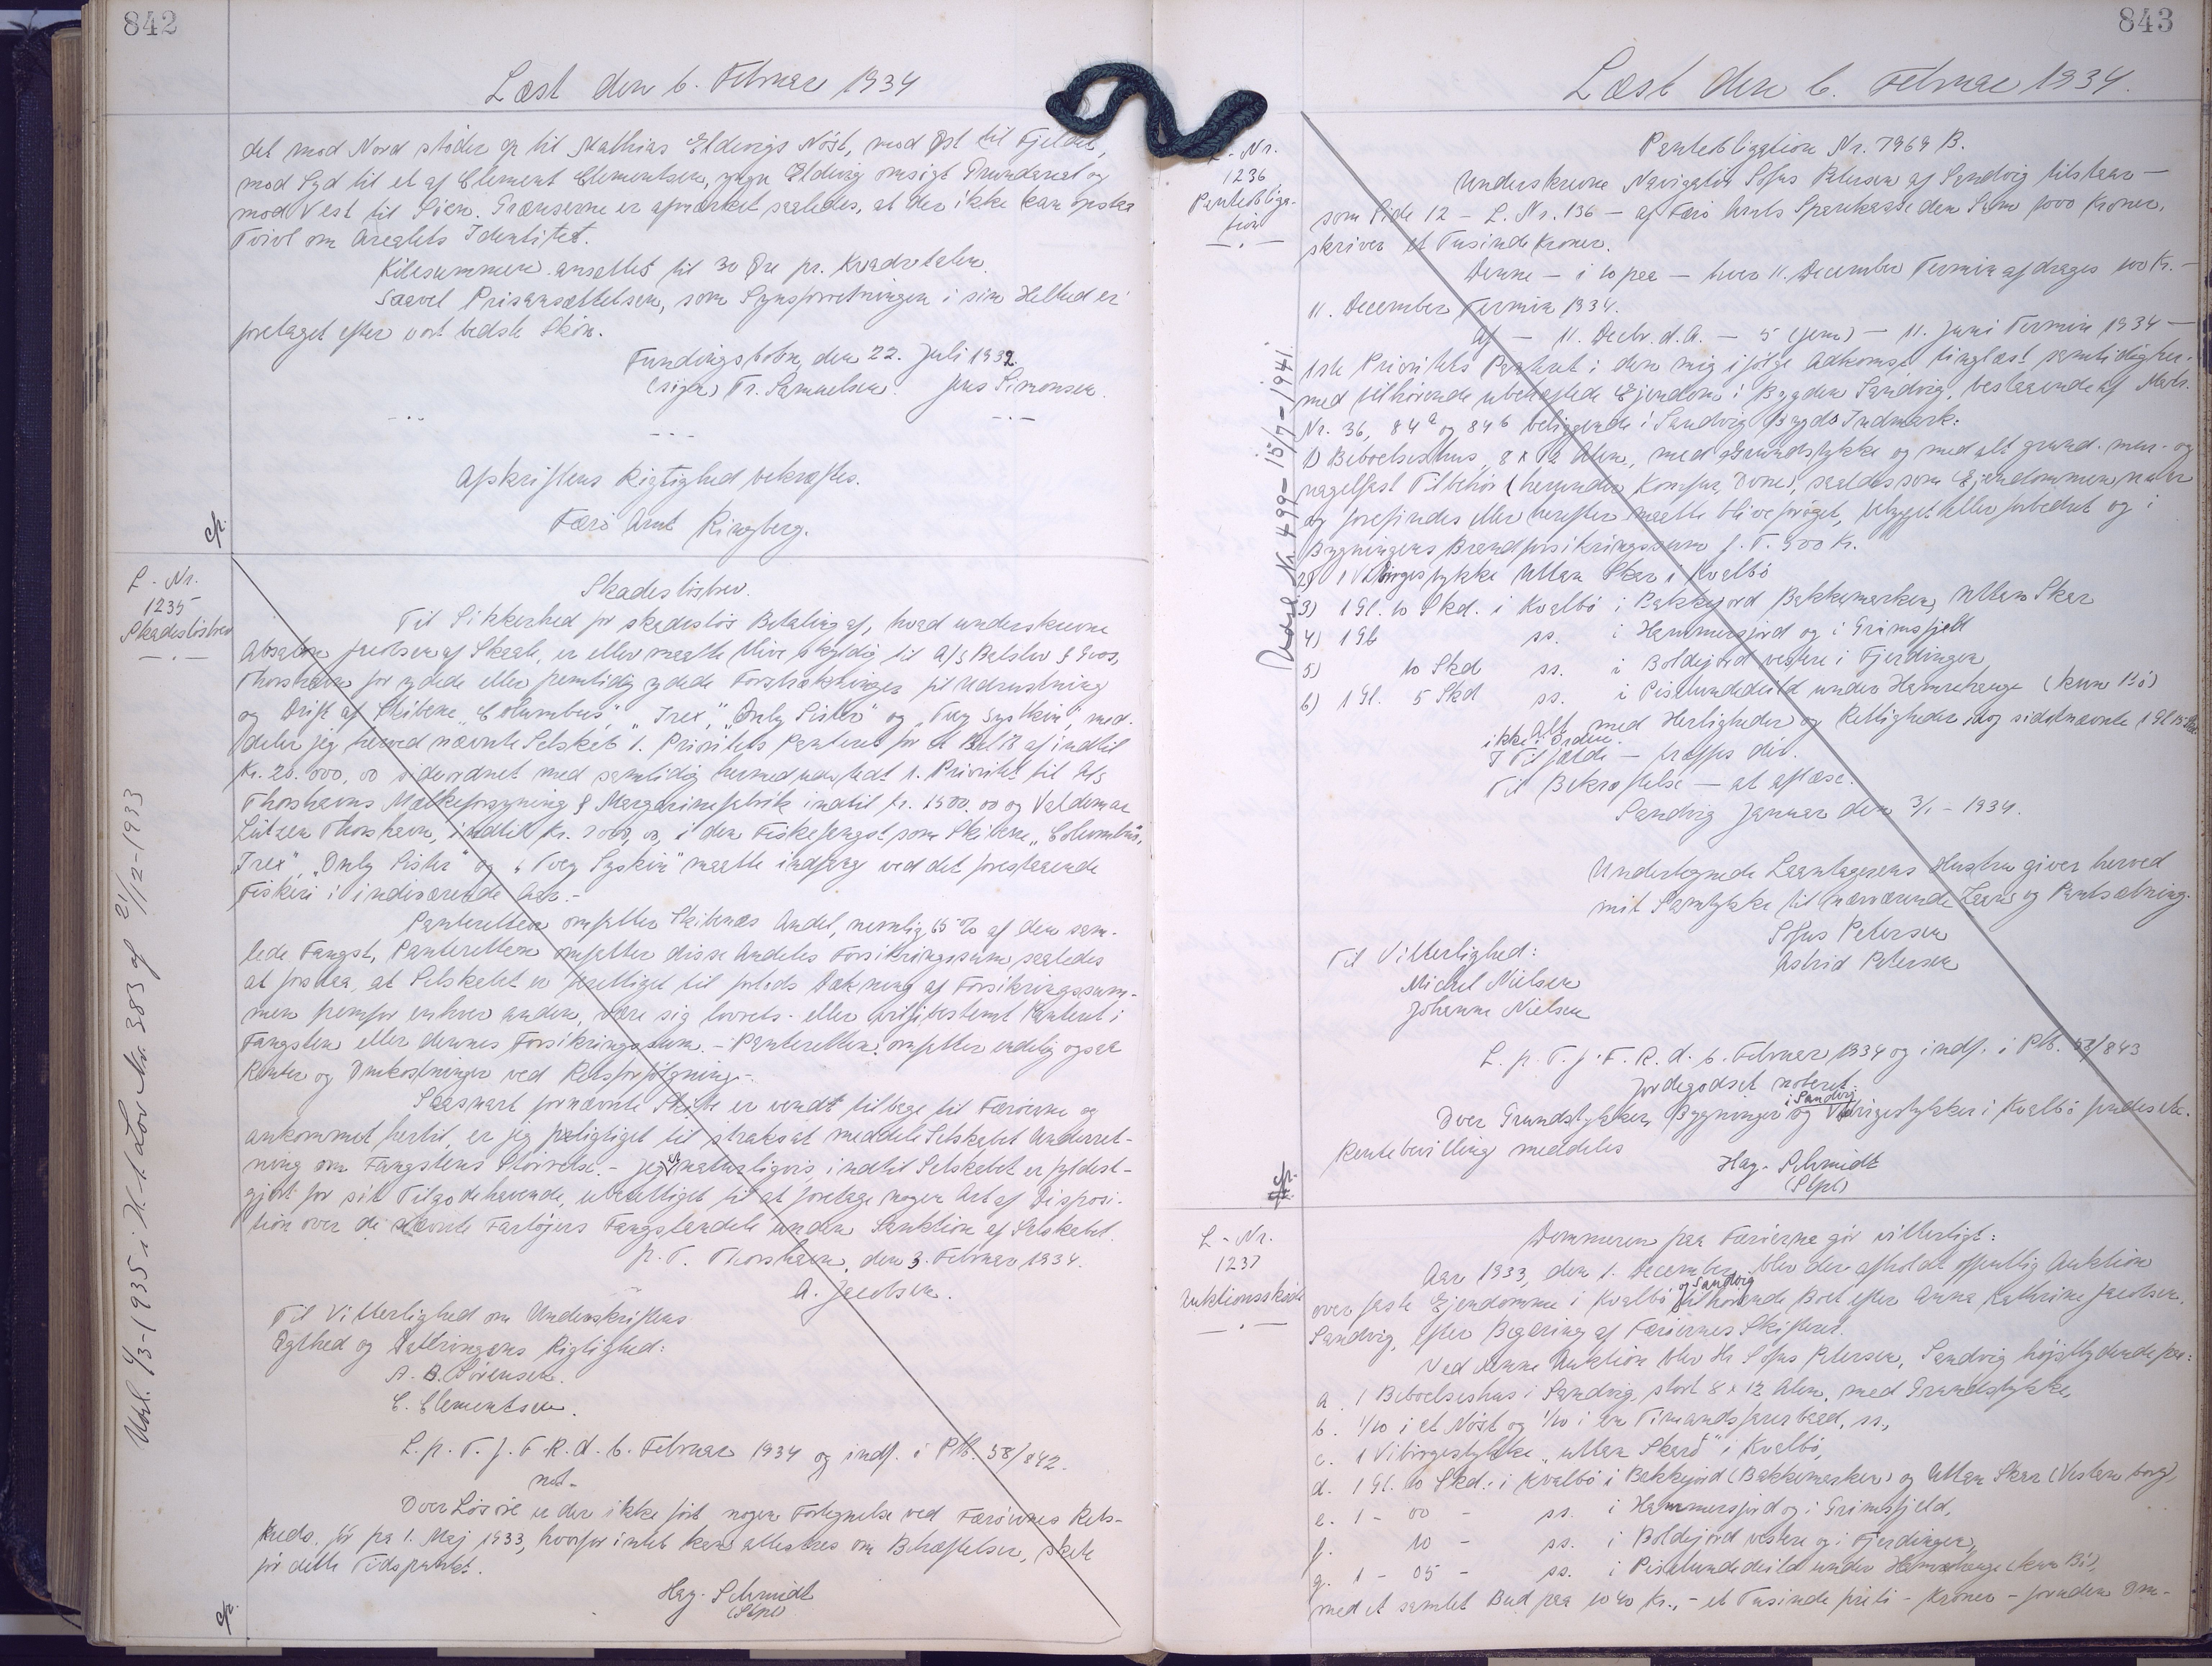 842
Læst den 6. Februar 1934
det mod Nord støder op til Mathias Eldevigs Nöst, mod Øst til Fjeldet,
mod Syd til et af Clement Clementsen, yngr Eldevig omsigt Grundareal og
mod Vest til Söen. Grænserne er afmærket saaledes, at der ikke kan opstaa
Tvivl om Arealets Identitet.
Kilesummen ansattes til 30 Øre pr. Kvadratalen.
Saavel Prisansættelsen, som Synsforretningen i sin Helhed er
foretaget efter vort bedste Skön.
Fundingsbotn, den 22. Juli 1932.
(sign) Fr. Samuelsen. Jens Simonsen.
Afskriftens Rigtighed bekræftes.
Færö Amt Ringberg.
cfr.
L-Nr.
1235
Skadeslösbrev
Skadeslösbrev.
Til Sikkerhed for skadeslös Betaling af, hvad underskrevne
Absalon Jacobsen af Skaale, er eller maatte blive skyldig til A/S Balslev & Groos,
Thorshavn for ydede eller fremtidig ydede Forstrækninger til Udrustning
og Drift af Skibene "Columbus", "Trex", "Only Sister" og "Tvey Systkin", med-
deler jeg herved nævnte Selskab 1. Prioritets Panteret for et Belöb af indtil
Kr. 20.000,00 sideordnet med samtidig hermed udstedt 1. Prioritet til A/S
Thorshavns Mælkeforsyning & Margarinefabrik indtil kr. 1500,00 og Valdemar
Lützen Thorshavn, indtil Kr. 2000,00, i den Fiskefangst som Skibene "Columbus",
"Trex", "Only Sister" og "Tvey Syskin" maatte indfange ved det forestaaende
Fiskeri i indeværende Aar.-
Panteretten omfatter Skibenes Andel, nemlig 65% af den sam-
lede Fangst, Panteretten omfatter disse Andeles Forsikringssum saaledes
at forstaa, at Selskabet er berettiget til forlods Dækning af Forsikringssum-
men fremfor enhver anden, være sig lovrets- eller viljebestemt Panteret i
Fangsten eller dennes Forsikringssum.- Panteretten omfatter endelig ogsaa
Renter og Omkostninger ved Retsforfölgning.-
Saasnart fornævnte Skibe er vendt tilbage til Færöerne og
ankommet hertil, er jeg pligtiget til straks at meddele Selskabet Underret-
ning om Fangstens Störrelse.- Jeg er naturligvis, indtil Selskabet er fyldest-
gjort for sit Tilgodehavende, uberettiget til at foretage nogen Art af Disposi-
tion over de nævnte Fartöjers Fangstandele uden Sanktion af Selskabet.
p.T. Thorshavn, den 3. Februar 1934.
A. Jacobsen.
Til Vitterlighed om Underskriftens
Ægthed og Dateringens Rigtighed:
A. B. Sörensen.
C. Clementsen.
L.p.T.f.F.R.d. 6. Februar 1934 og indf. i Ptb. 58/842.
not-
Over Lösöre er der ikke fört nogen Fortegnelse ved Færöernes Rets-
kreds för fra 1. Maj 1933, hvorfor intet kan attesteres om Behæftelser, skete
för dette Tidspunkt.
Hag. Schmidt
(Stpl)
cfr.
Udsl. 4/3-1935 i H. t. a Lov Nr. 383 af 21/12-1933
843
Læst den 6. Februar 1934.
L-Nr.
1236
Pantebliga-
tion
Pantebligation Nr. 7969 B.
Underskrevne Navigatör Sofus Petersen af Sandvig tilstaar -
som Side 12 - L. Nr. 136 - af Færö Amts Sparekasse den Sum 1000 Kroner,
skriver et Tusinde Kroner.
Denne - i 10 paa - hver 11. December Termin afdrages 100 Kr.-
11. December Termin 1934.
Af - 11. Decbr. d. A. - 5 (fem) - 11. Juni Termin 1934 -
1ste Prioritets Panteret i den mig ifölge Adkomst, tinglæst samtidig her-
med tilhörende ubehæftede Ejendom i Bygden Sandvig, bestaaende af Matr.
Nr. 36, 84a og 84b beliggende i Sandvig Bygds Indmark:
1) Beboelseshus, 8 x 12 Alen, med Grundstykke og med alt grund- mur- og
nagelfast Tilbehör (herunder Komfur, Ovne), saaledes som Ejendommen, nu er
og forefindes eller herefter maatte blive foröget, bebygget eller forbedret og i
Bygningens Brandforsikringssum f. T. 500 Kr.
2) 1 Vibirgestykke Uttan Skar i Kvalbö
3) 1 Gl. 10 Skd. i Kvalbö i Bakkejord Bakkemarken, Uttan Skar
4) 1 Gl ss. i Hammersjord og i Grimsfjeld
5) 10 Skd ss. i Boldejord vestere i Fjerdingen
6) 1 Gl. 5 Skd ss. i Piselundedeild under Hamrehauge (kun Bö)
Alt med Herligheder og Rettigheder
ikke i Orden.
I Tilfælde - træffes div.
Til Bekræftelse - at aflæse.
Sandvig Januar den 3/1 - 1934.
Undertegnede Laantagerens Hustru giver herved
mit Samtykke til nærværende Laan og Pantsætning.
Sofus Petersen
Astrid Petersen
Til Vitterlighed:
Michel Nielsen
Johanne Nielsen
L.p.T.f.F.R.d. 6. Februar 1934 og indf. i Ptb. 58/843
jordegodset noteret.
Over Grundstykker, Bygninger i Sandvig og Vibirgestykker i Kvalbö
Rentebevilling meddeles
Hag. Schmidt
(Stpl)
cfr.
Udsl. Nr. 499-15/7-1941.
L-Nr.
1237
Auktionsskøde
Dommeren paa Færöerne gör vitterligt:
Aar 1933, den 1. December, blev der afholdt offentlig Auktion
over faste Ejendomme i Kvalbö og Sandvig tilhörende Boet efter Anna Kathrine Jacobsen,
Sandvig, efter Begæring af Færöernes Skifteret.
Ved denne Auktion blev Hr Sofus Petersen, Sandvig höjstbydende paa:
a. 1 Beboelseshus i Sandvig, stort 8 x 12 Alen, med Grundstykke,
b. 1/10 i et Nöst og 1/10 i en Timandsfarerbaad, ss.,
c. 1 Vibirgestykke "uttan Skarð" i Kvalbö,
d. 1 Gl. 10 Skd. i Kvalbö i Bakkejord (Bakkemarken) og Uttan Skar (Vestan borg),
e. 1 - 00 - ss. i Hammersjord og i Grimsfjeld,
f. 10 - ss. i Boldejord vestere og i Fjerdingen,
g. 1 - 05 - ss. i Piselundedeild under Hamrehauge (kun Bö),
med et samlet Bud paa 1040 Kr., - et Tusinde firti - Kroner - foruden Om-